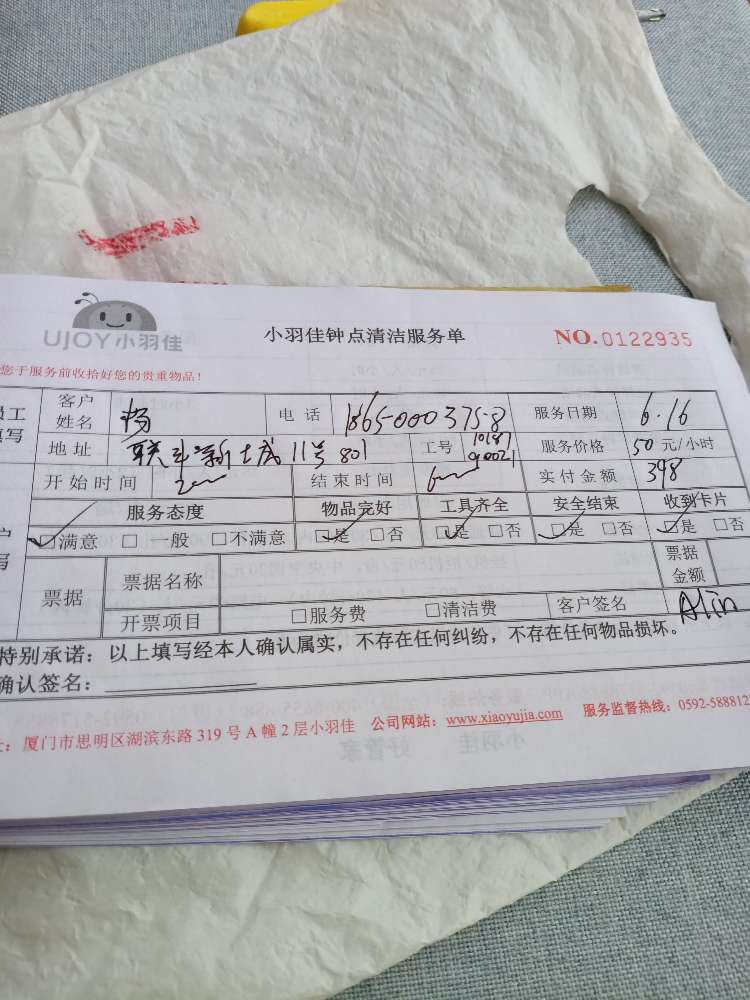 UJOY小羽佳
小羽佳钟点清洁服务单
NO.0122935
您于服务前收拾好您的贵重物品!
员工
填写
客户姓名 杨 电话 18650003758 服务日期 6.16
地址 11号801 工号 服务价格 50元/小时
开始时间 结束时间 实付金额 398
服务态度 物品完好 工具齐全 安全结束 收到卡片
□满意 □一般 □不满意 □是 □否 □是 □否 □是 □否 □是 □否
票据 票据名称 票据金额
开票项目 □服务费 □清洁费 客户签名 Alin
特别承诺:以上填写经本人确认属实,不存在任何纠纷,不存在任何物品损坏。
确认签名:
厦门市思明区湖滨东路319号A幢2层小羽佳 公司网站:www.xiaoyujia.com 服务监督热线:0592-588812